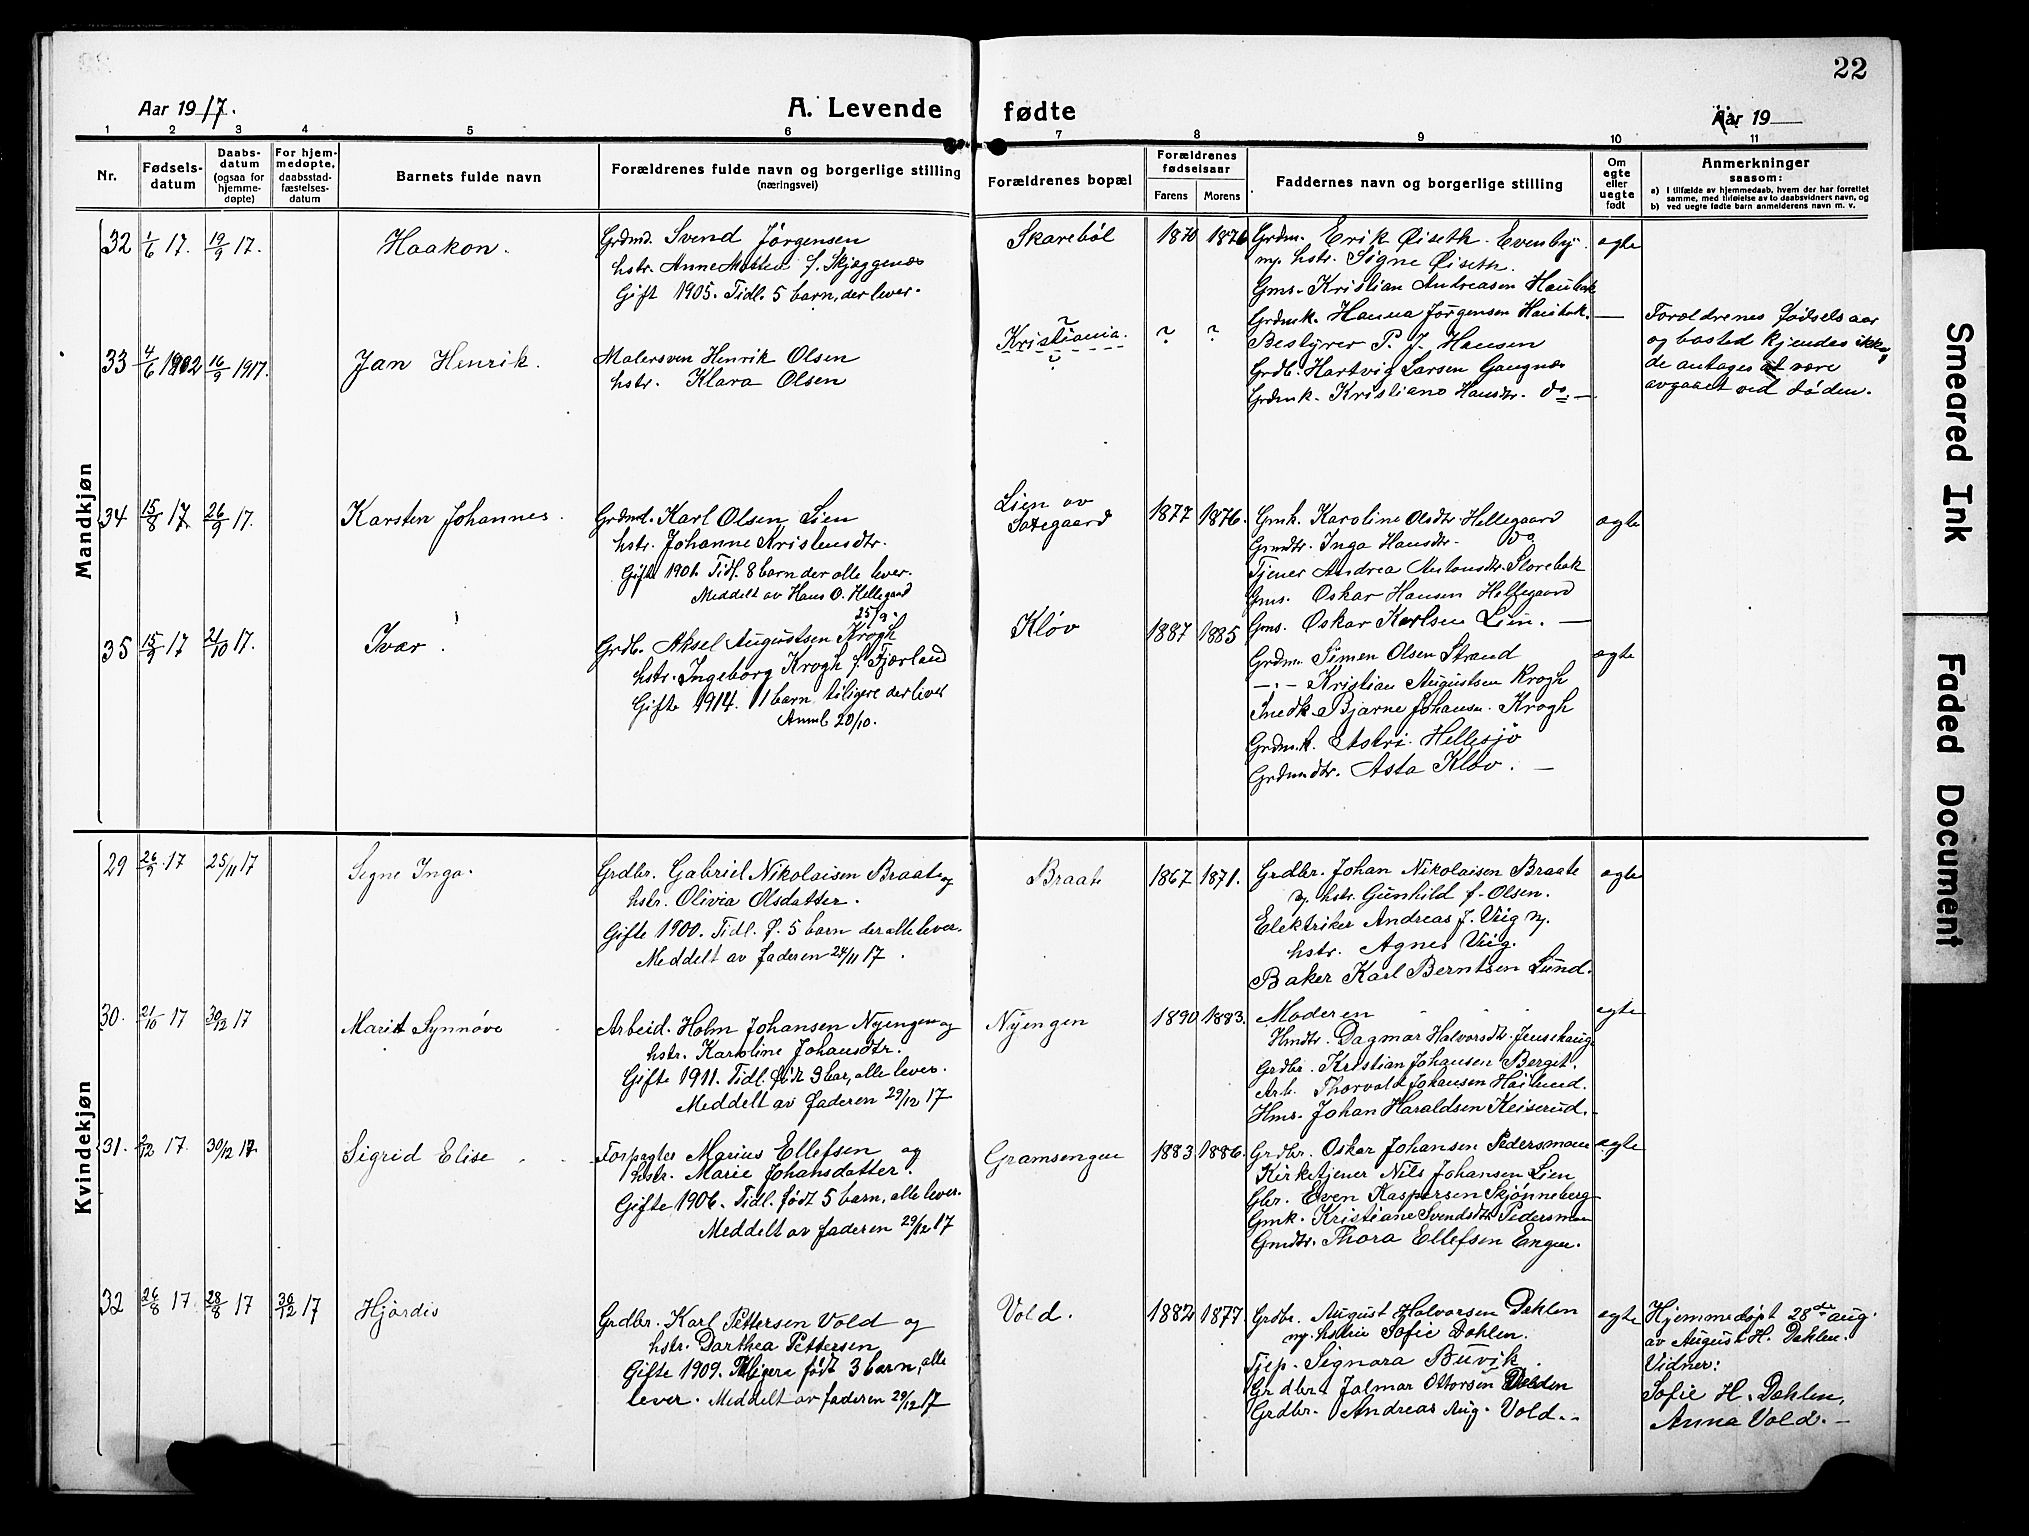 22
Aar 1917.
A. Levende fødte
Aar 19
1 2 3 4 5 6 7 8 9 10 11
Nr.
Fødsels-
datum
Daabs-
datum
(ogsaa for
hjemme-
døpte)
For hjem-
medøpte,
daabsstad-
fæstelses-
datum
Barnets fulde navn
Forældrenes fulde navn og borgerlige stilling
(næringsvei)
Forældrenes bopæl
Forældrenes
fødselsaar
Farens Morens
Faddernes navn og borgerlige stilling
Om
egte
eller
uegte
født
Anmerkninger
saasom:
a) I tilfælde av hjemmedaab, hvem der har forrettet
samme, med tilføielse av to daabsvidners navn, og
b) ved uegte fødte barn anmelderens navn m. v.
Mandkjøn
32 1/6 17. 19/9 17. Haakon.
Grdmd. Svend Jørgensen
hstr. Anne Marten f. Skjæggenæs
Gift 1905. Tidl. 5 barn, der lever.
Skarebøl 1870 1876
Grdm. Erik Øiseth. Evenby.
og hstr. Signe Øiseth.
Gms. Kristian Andreasen Haubak
Grdmk. Hanna Jørgensen Haubak.
egte
33 4/6 1902 16/9 1917. Jan Henrik.
Malersven Henrik Olsen
hstr. Klara Olsen
Kristiania. ? ?
Bestyrer P. J. Hansen
Grdb. Hartvig Larsen Gangnæs
Grdmk. Kristiane Hansdtr. do.
Forældrenes fødselsaar
og bosted kjendes ikke,
de antages at være
avgaaet ved døden.
34 15/8 17 26/9 17. Karsten Johannes.
Grdmd. Karl Olsen Lien
hstr. Johanne Kristensdtr.
Gifte 1901. Tidl. 8 barn der alle lever.
Meddelt av Hans O. Hellegaard
25/9.
Lien av
1877 1876.
Gmk. Karoline Olsdtr. Hellegaard
Grmdtr. Inga Hansdtr. do
Tjener Andrea Antonsdtr. Storebak
Gms. Oskar Hansen Hellegaard
Gms. Oskar Karlsen Lien.
egte
35 15/9 17 21/10 17. Ivar.
Grdb. Aksel Augustsen Krogh
hstr. Ingeborg Krogh f. Fjærland
Gifte 1914. 1 barn tiligere der lever
Anml 20/10.
Kløv 1887 1885
Grdm. Simen Olsen Strand
—.— Kristian Augustsen Krogh
Smedk. Bjarne Johansn. Krogh
Grdmk. Astri Hellesjø
Grdmdtr. Asta Kløv.
egte
Kvindekjøn
29 26/9 17 25/11 17 Signe Inga.
Grdbr. Gabriel Nikolaisen Braate og
hstr. Olivia Olsdatter.
Gifte 1900. Tidl. f. 5 barn der alle lever.
Meddelt av faderen 24/11 17.
Braate 1867 1871.
Grdbr. Johan Nikolaisen Braate
og hstr. Gunhild f. Olsen.
Elektriker Andreas J. Viig og
hstr. Agnes Viig.
Baker Karl Berntsen Lund.
egte
30. 21/10 17 30/12 17 Marit Synnøve
Arbeid. Holm Johansen Nyengen og
hstr. Karoline Johansdtr.
Gifte 1911. Tidl. født 3 bar, alle lever.
Meddelt av faderen 29/12 17
Nyengen 1890 1883.
Moderen
Hmdtr. Dagmar Halvorsdtr. Jenshaug
Grdbr. Kristian Johansen Berget.
Arb. Thorvald Johansen Høilund.
Hms. Johan Haraldsen Keiserud.
egte
31. 2/12 17 30/12 17 Sigrid Elise
Forpagter Marius Ellefsen og
hstr. Marie Johansdatter.
Gifte 1906. Tidl. født 5 barn, alle lever.
Meddelt av faderen 29/12 17
Gramsengen 1883 1886.
Grdbr. Oskar Johansen Pedersmoen
Kirketjener Nils Johansen Lien
Gbr. Even Kaspersen Skjønneberg
Gmk. Kristiane Svendsdtr Pedersmoen
Gmdtr. Thora Ellefsen Engen.
egte
32 26/8 17. 28/8 17 30/12 17 Hjørdis
Grdbr. Karl Pettersen Vold og
hstr. Darthea Pettersen
Gifte 1909. Tidligere født 3 barn, alle
lever. Meddelt av faderen 29/12 17
Vold. 1882 1877
Grdbr. August Halvorsen Dahlen
og hstru Sofie Dahlen.
Tjep. Signora Buvik.
Grdbr. Jalmar Ottorsen
Grdbr. Andreas Aug. Vold.
egte
Hjemmedøpt 28de aug.
av August H. Dahlen.
Vidner:
Sofie H. Dahlen,
Anna Vold.
Smeared Ink
Faded Document